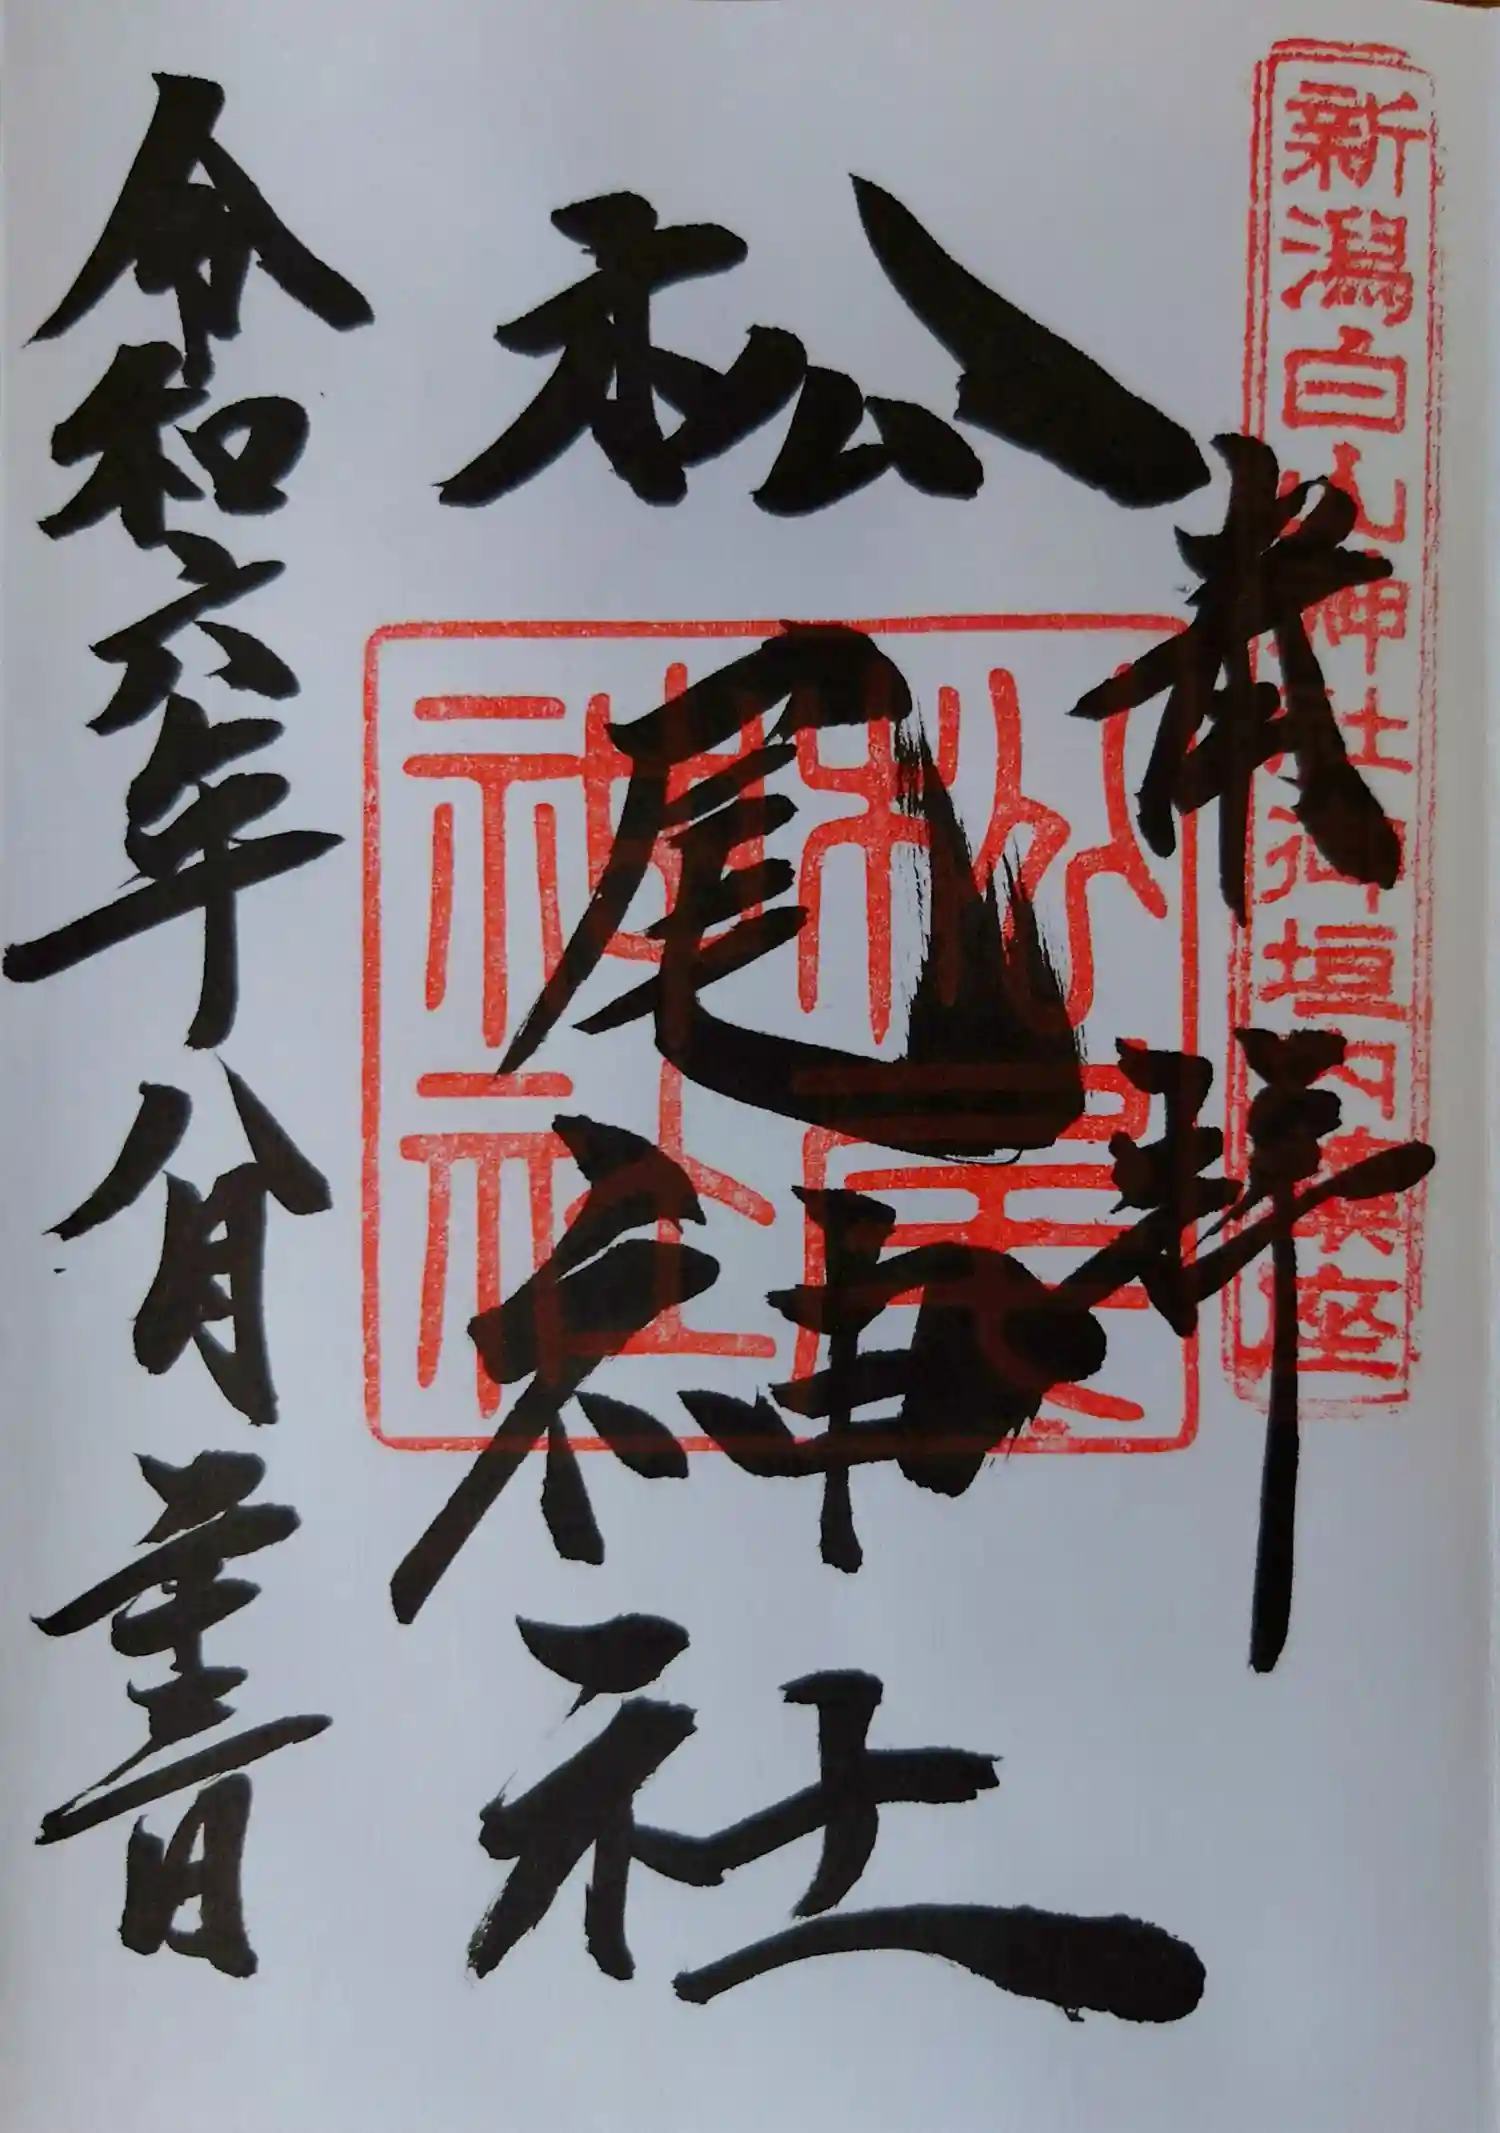 新潟白山神社御垣内鎮座
奉拝
松尾神社
松尾神社
令和六年八月二十三日